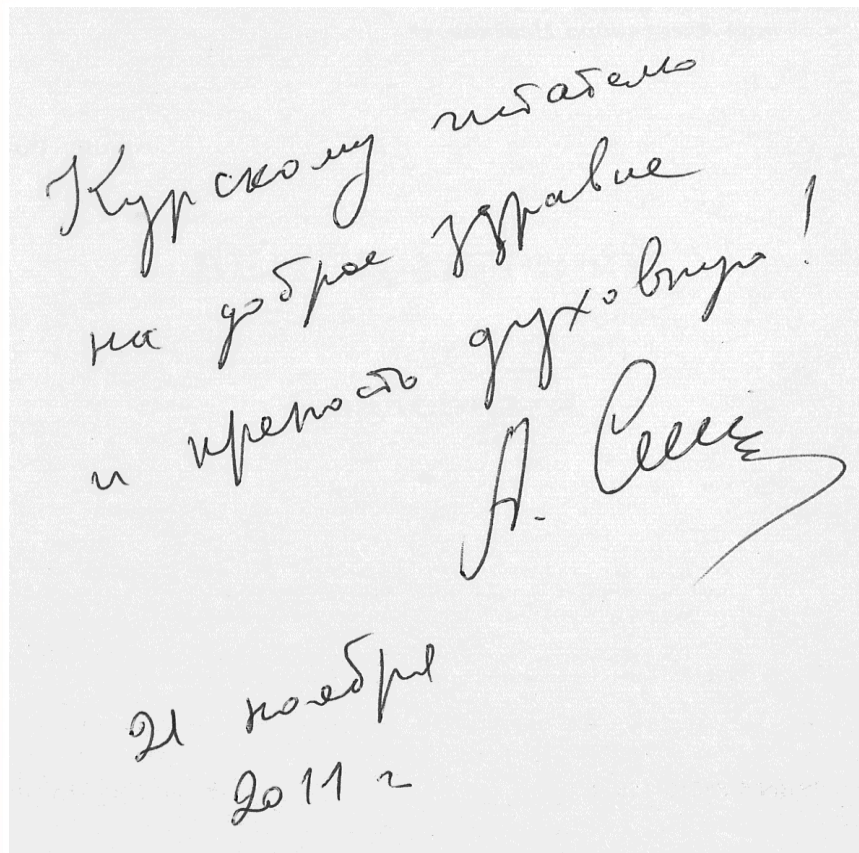 Курскому читателю
на доброе здравие
и крепость духовную!
А.
21 ноября
2011 г